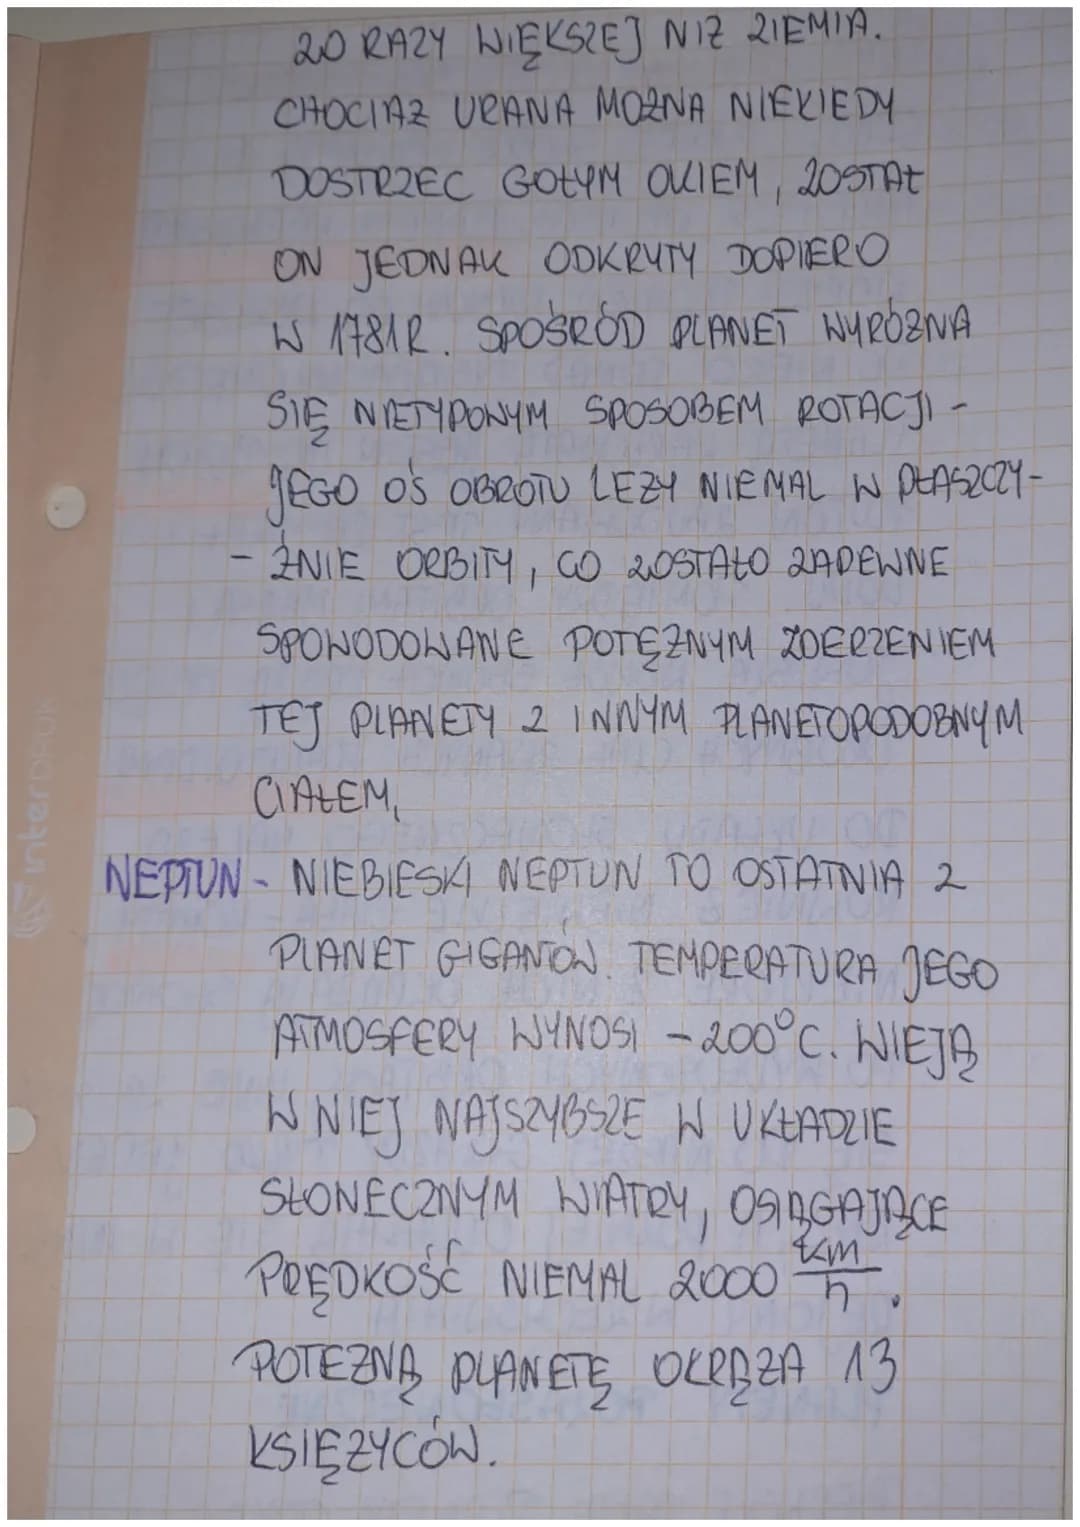 20 RAZY WIĘKSZEJ NIŻ ZIEMIA.
CHOCIAŻ URANA MOŻNA NIEKIEDY
DOSTRZEC GOŁYM OKIEM, ZOSTAŁ
ON JEDNAK ODKRYTY DOPIERO
W 1781R. SPOŚRÓD PLANET WYRÓŻNA
SIĘ NIETYPOWYM SPOSOBEM ROTACJI -
JEGO OŚ OBROTU LEŻY NIEMAL W PŁASZCZY-
- ŹNIE ORBITY, CO ZOSTAŁO ZAPEWNE
SPOWODOWANE POTĘŻNYM ZDERZENIEM
TEJ PLANETY Z INNYM PLANETOPODOBNYM
CIAŁEM,
NEPTUN - NIEBIESKI NEPTUN TO OSTATNIA Z
PLANET GIGANTÓW. TEMPERATURA JEGO
ATMOSFERY WYNOSI -200°C. WIEJĄ
W NIEJ NAJSZYBSZE W UKŁADZIE
SŁONECZNYM WIATRY, OSIĄGAJĄCE
PRĘDKOŚĆ NIEMAL 2000 km/h.
POTEŻNĄ PLANETĘ OKRĄŻA 13
KSIĘŻYCÓW.
interDRUK